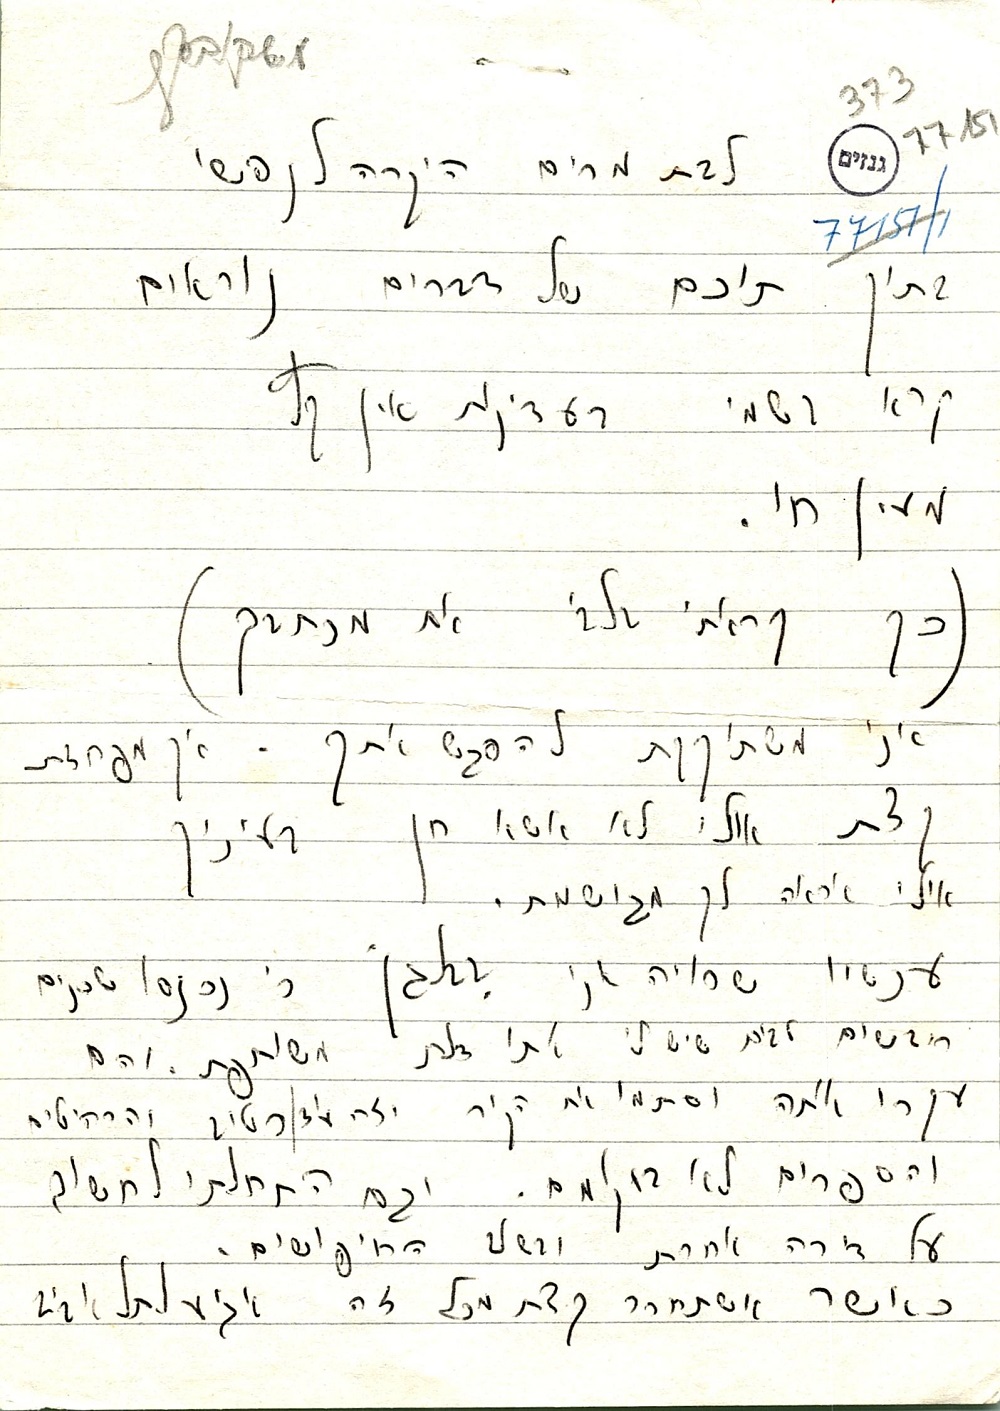 373
77151
גנזים
77157/1
לבת מרים היקרה לנפשי
בתוך תוכם של דברים נוראים
קרא בשמי בעדינות אין קול
מעין חי.
(כך קראתי בלבי את מכתבך)
אני משתוקקת להפגש אתך - אך מפחדת
קצת אולי לא אשא חן בעיניך
אולי אראה לך מגושמת.
עכשיו שרויה אני בבלגן כי נכנסו שכנים
חדשים לבית שיש לי אתו דלת משותפת. והם
עקרו אותה וסתמו את הקיר וזה עוד רטוב והרהיטים
והספרים לא במקומם. וגם התחלתי לחשוב
על דירה אחרת ובשלב החיפושים.
כאשר אשתחרר קצת מכל זה אגיע לתל אביב